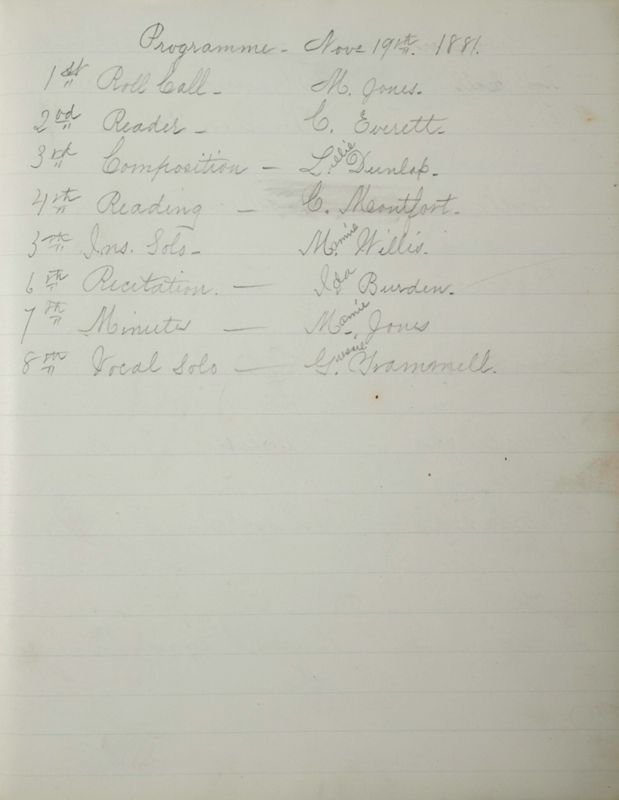 Programme - Nove 19th. 1881.
1st Roll Call - M. Jones.
2nd Reader - C. Everett.
3rd Composition - Lillie Dunlap.
4th Reading - C. Montfort.
5th Ins. Solo - Mamie Willis.
6th Recitation. - Ida Burden.
7th Minutes - Mamie Jones
8th Vocal Solo - Gussie Trammell.